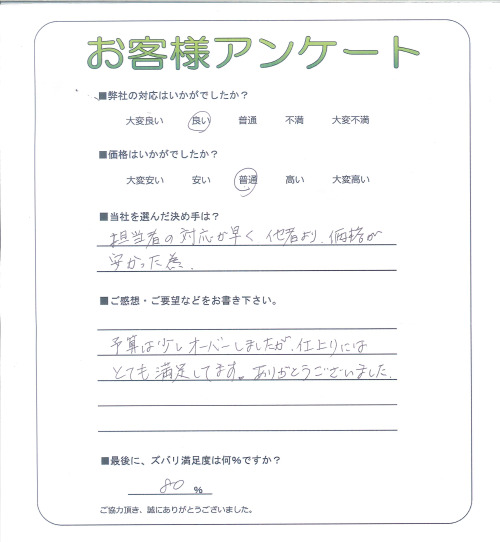 お客様アンケート
■弊社の対応はいかがでしたか？
大変良い 良い 普通 不満 大変不満
■価格はいかがでしたか？
大変安い 安い 普通 高い 大変高い
■当社を選んだ決め手は？
担当者の対応が早く他者より、価格が
安かった為。
■ご感想・ご要望などをお書き下さい。
予算は少しオーバーしましたが、仕上りには
とても満足してます。ありがとうございました。
■最後に、ズバリ満足度は何％ですか？
80 ％
ご協力頂き、誠にありがとうございました。